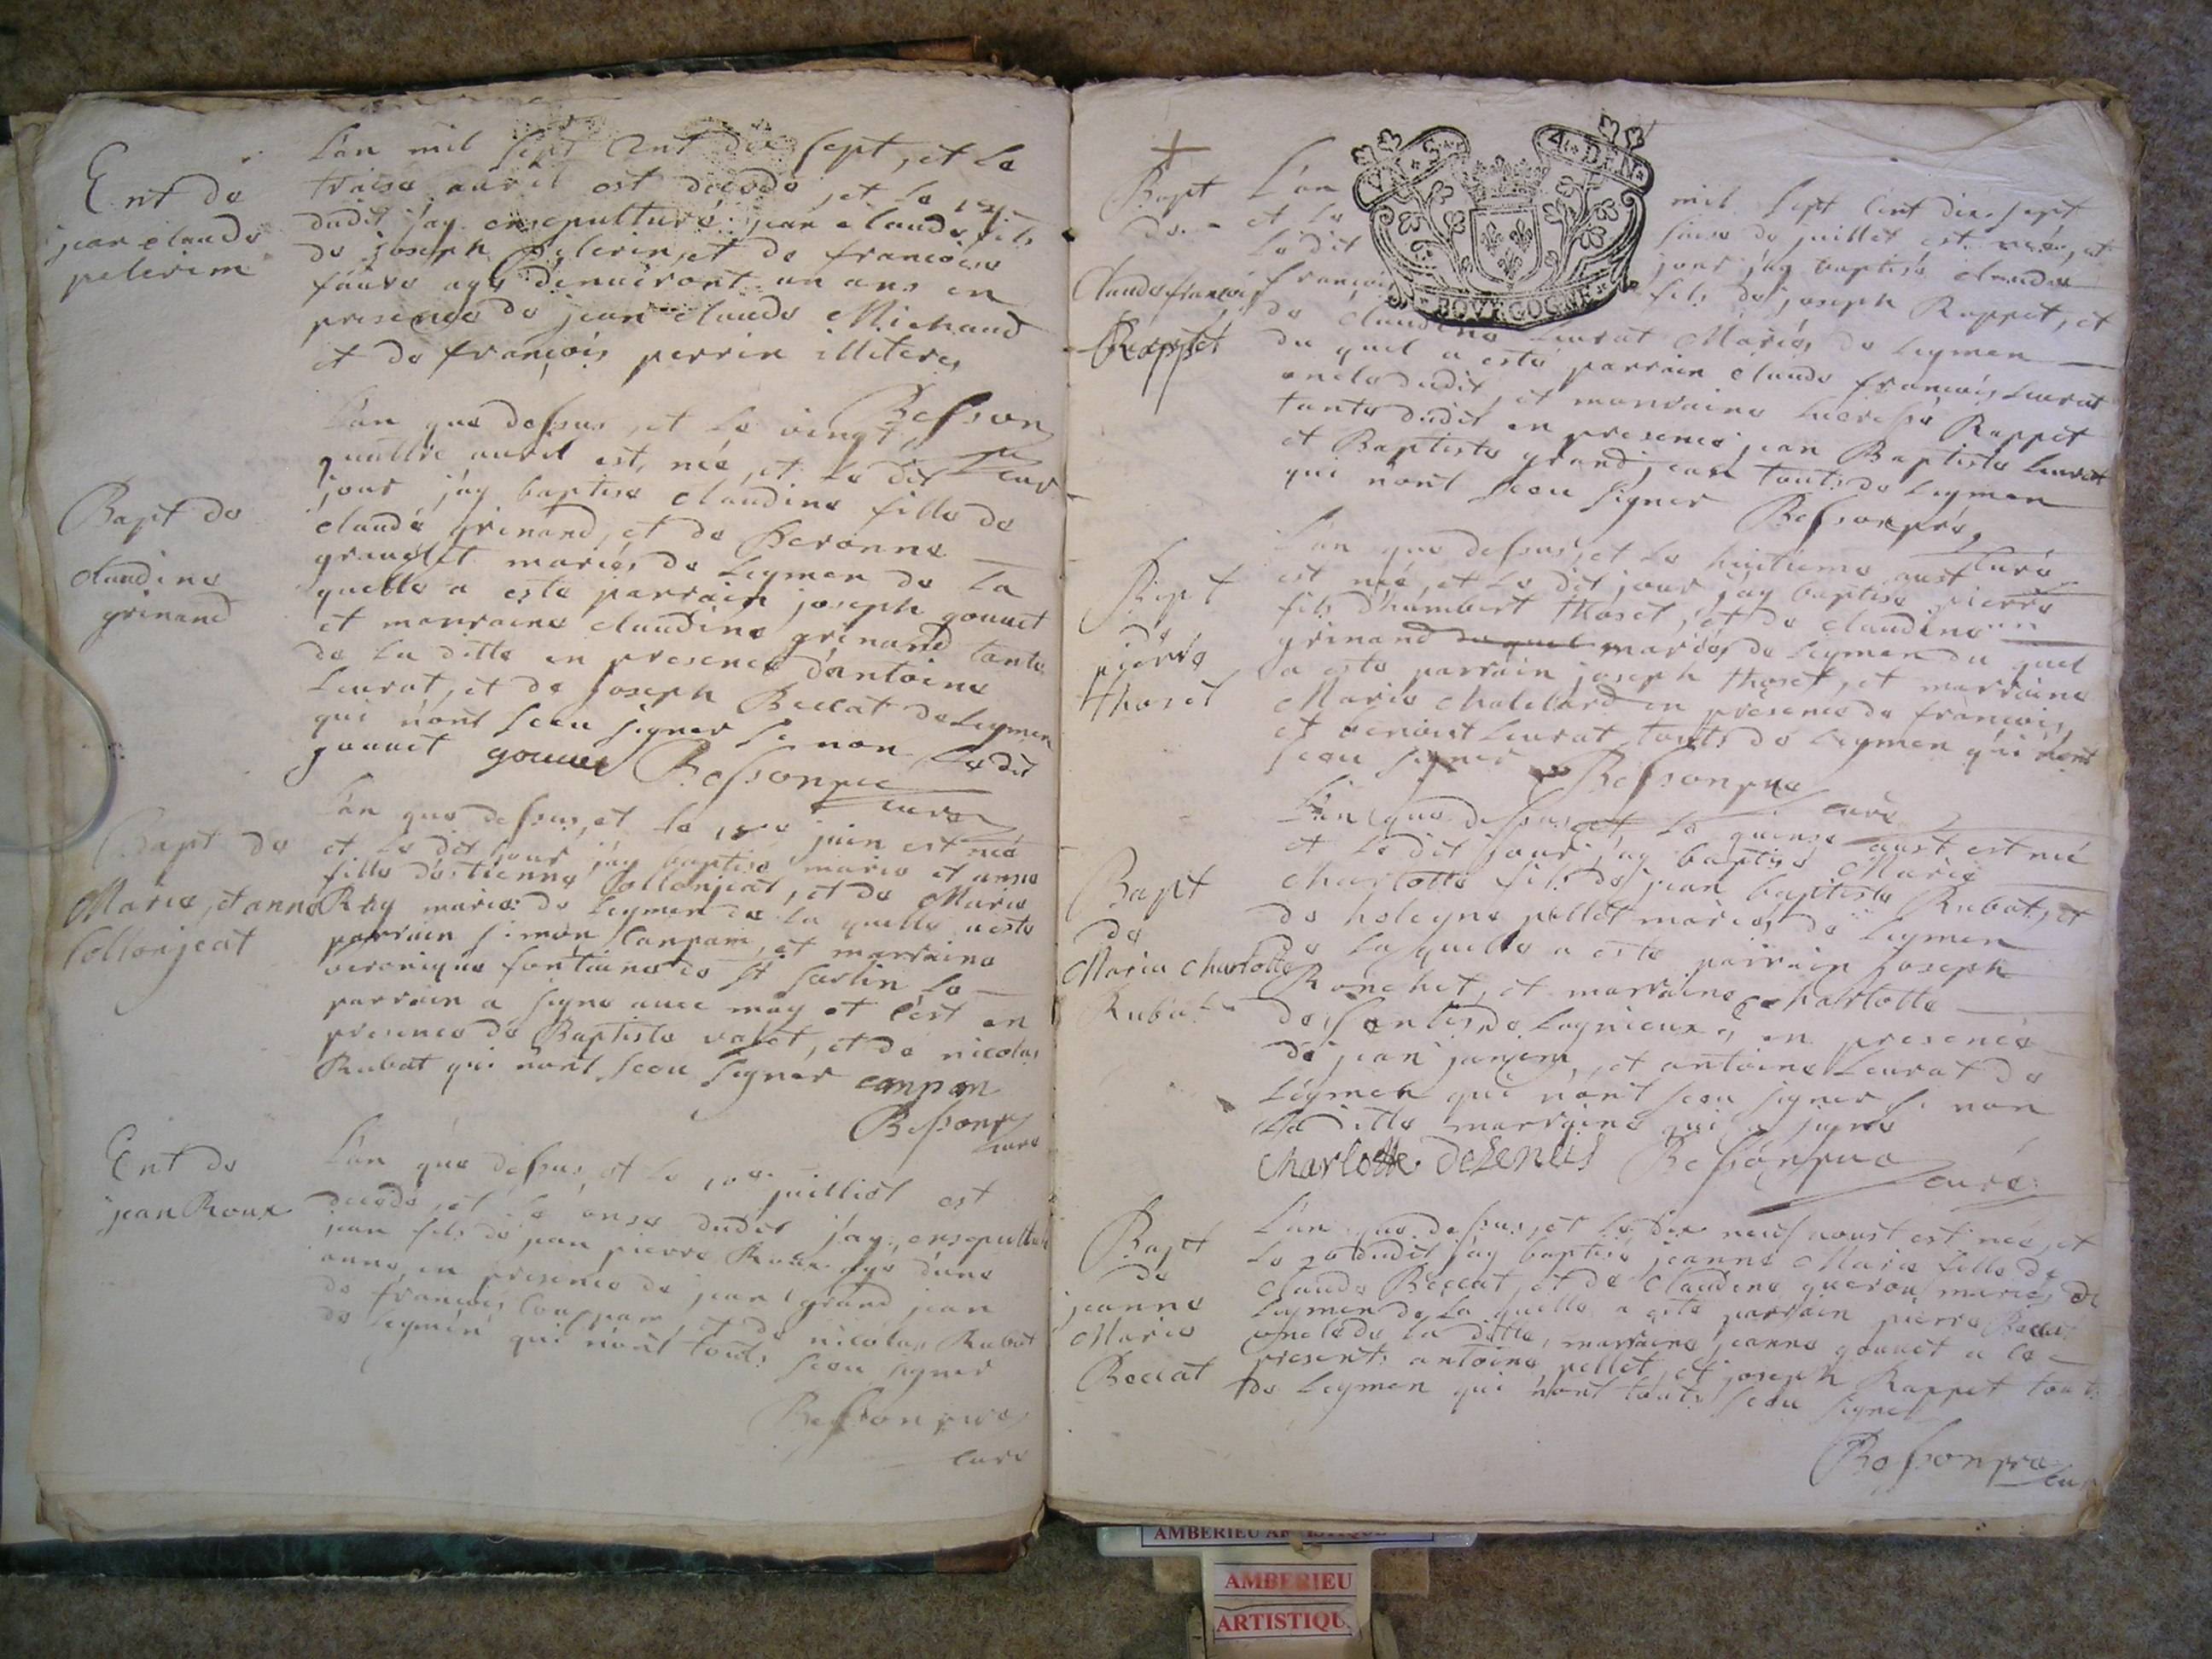 Ent de
jean claude
pelerin
L'an mil sept Cent dix sept, et le
traise auril est decede, et le 14
dudit j'ay ensepulturé jean claude fils
de joseph pelerin et de francoise
faure agé denuiront un ans en
presence de jean claude Michaud
et de françois perrin illiteres
Besson
cure
Bapt de
claudine
grinand
L'an que dessus, et le vingt
quattre auril est, née, et le dit
jour j'ay baptisé claudine fille de
claude grinand, et de Peronne
mariés de Leymen de la
quelle a esté parrain joseph gouuet
et marraine claudine grinand tante
de la ditte en presence d'antoine
Leurat, et de joseph Beccat de Leymen
qui n'ont sceu signer si non le dit
gouuet gouuet Besson pre
cure
Bapt de
Marie, et anne
Collonjeat
L'an que dessus, et le juin est née
et le dit jour j'ay baptisé marie et anne
fille d'estienne Collonjeat, et de Marie
Ray mariés de Leymen de la quelle a esté
parrain simon Canpam, et marraine
veronique fontaine de St Sorlin le
parrain a signé auec moy et c'est en
presence de Baptiste valet, et de nicolas
Rubat qui n'ont sceu signer canpam
Besson pre
cure
Ent de
jean Roux
L'an que dessus, et le 10e juilliet est
decedé, et le onse dudit j'ay ensepulturé
jean fils de jean pierre Roux agé d'une
anne en presence de jean grand jean
de françois Canppam, et de nicolas Rubat
de Leymen qui n'ont touts sceu signer
Besson pre
curé
+
Bapt
de
Claude françois
Rappet
V. S. 4. DEN.
BOVRGOGNE
L'an mil sept Cent dix sept
et le saise de juillet est né, et
le dit jour j'ay baptisé claude
françois fils de joseph Rappet, et
de claudine Leurat Mariés de Leymen
du quel a esté parrain claude françois Leurat
oncle dudit, et marraine Rappet
tante dudit en presence jean Baptiste Leurat
et Baptiste grand jean touts de Leymen
qui n'ont sceu signer Besson pre
Curé
Bapt
de
pierre
thoset
L'an que dessus, et le huitieme aust
est né, et le dit jour j'ay baptisé pierre
fils d'humbert thoset, et de claudine
grinand mariés de Leymen du quel
a esté parrain joseph thoset, et marraine
Marie Chalelard en presence de françois,
et benoist Leurat touts de Leymen qui n'ont
sceu signer Besson pre
curé
Bapt
de
Maria Charlotte
Rubat
L'an que dessus et le quinse aust est né
et le dit jour j'ay baptisé Marie
Charlotte fils de jean baptiste Rubat, et
de heleyne pellet mariés de Leymen
de la quelle a esté parrain joseph
Ronchet, et marraine Charlotte
de senlis de Lagnieux, en presence
de jean janjem, et antoine Leurat de
Leymen qui n'ont sceu signer si non
la ditte marraine qui a signé
Charlotte deSenlis Besson pre
curé
Bapt
de
jeanne
Marie
Beccat
L'an que dessus, et le dix neuf aoust est née, et
le 20 dudit j'ay baptisé jeanne Marie fille de
claude Beccat, et de claudine queron mariés de
Leymen de la quelle a esté parrain pierre Beccat
oncle de la ditte, marraine jeanne gouuet a ce
presents antoine pellet, et joseph Rappet touts
de Leymen qui n'ont touts sceu signer
Besson pre
cur
AMBERIEU ARTISTIQUE
AMBERIEU
ARTISTIQU